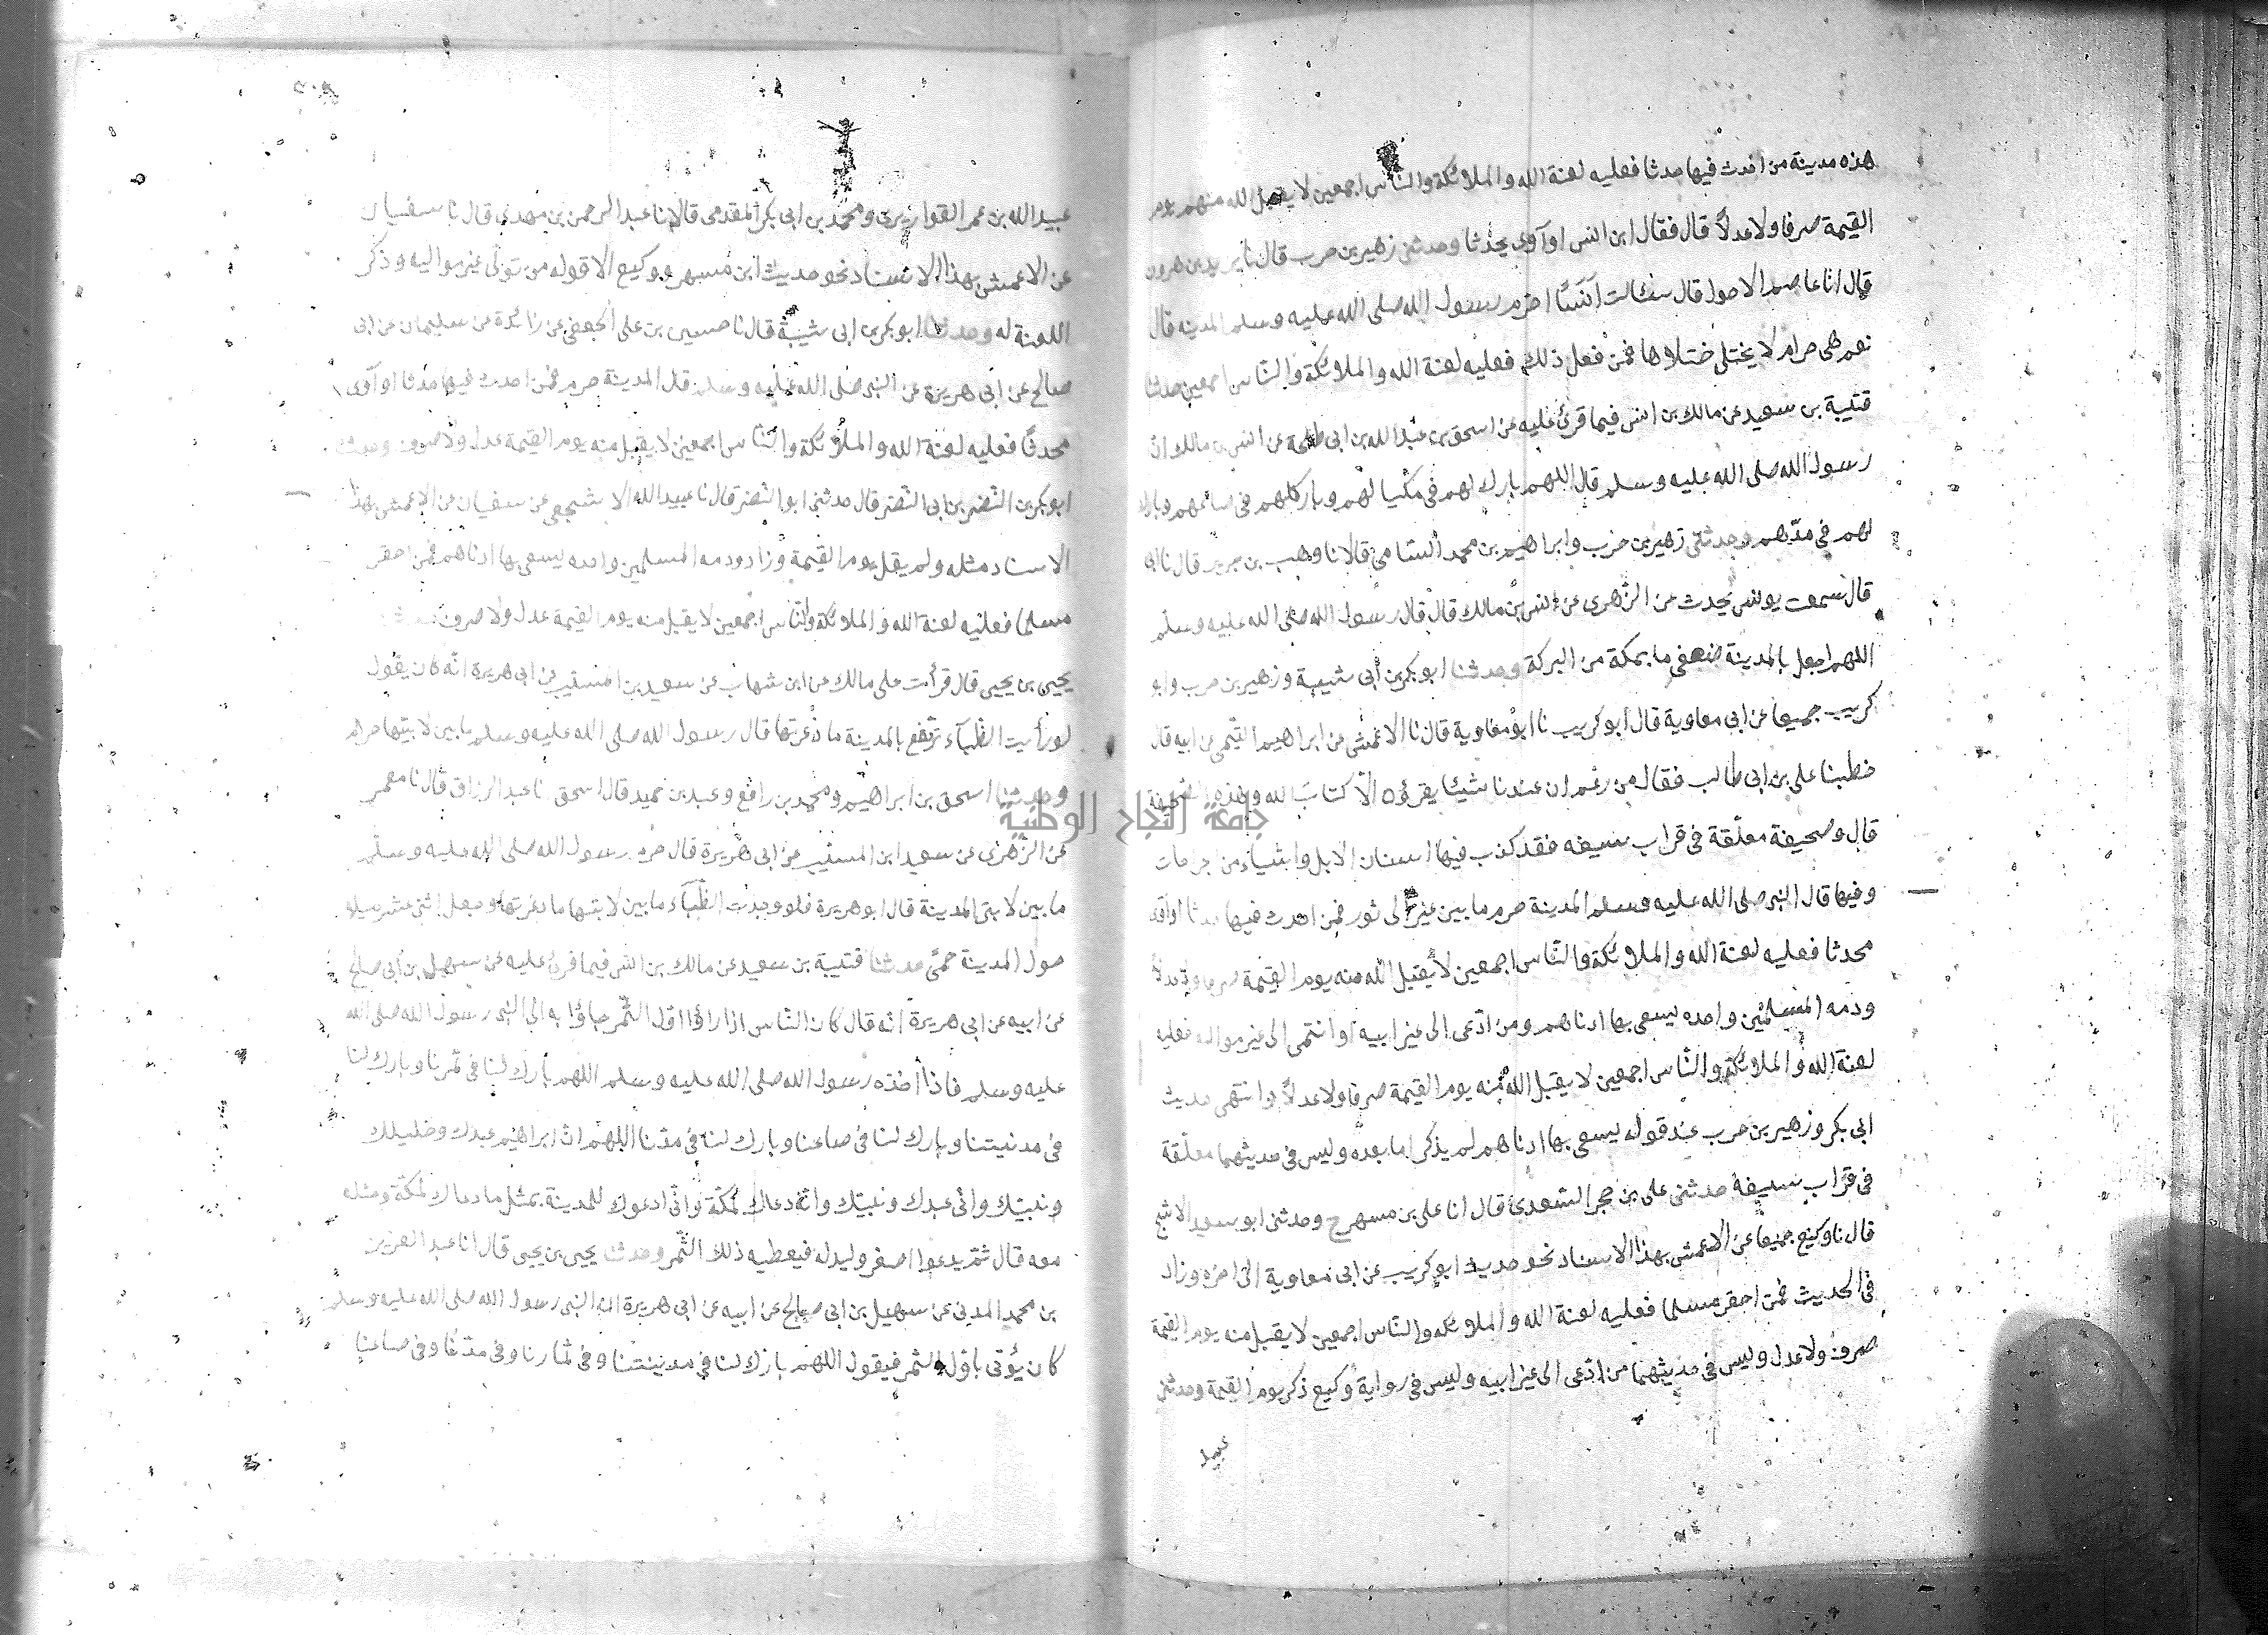 هذه مدينة من احدث فيها حدثا فعليه لعنة الله والملائكة والناس اجمعين لا يقبل الله منهم يوم
القيمة صرفا ولا عدلا قال فقال ابن انس او آوى محدثا وحدثني زهير بن حرب قال نا يزيد بن هرون
قال انا عاصم الاحول قال سئالت انسًا احرم رسول الله صلى الله عليه وسلم المدينه قال
نعم هى حرام لا يختلى ختلاها فمن فعل ذلك فعليه لعنة الله والملائكة والناس اجمعين حدثنا
قتيبة بن سعيد عن مالك بن انس فيما قرئ عليه عن اسحق بن عبد الله بن ابى طلحة عن انس بن مالك ان
رسول الله صلى الله عليه وسلم قال اللهم بارك لهم فى مكيالهم وبارك لهم فى صاعهم وبارك
لهم في مدّهم وحدثنى زهير بن حرب وابراهيم بن محمد السامى قالا نا وهب بن جرير قال نا ابى
قال سمعت يونس يحدث عن الزهرى عن انس بن مالك قال قال رسول الله صلى الله عليه وسلم
اللهم اجعل بالمدينة ضعفى ما بمكة من البركة وحدثنا ابو بكر بن أبى شيبة وزهير بن حرب وابو
كريب جميعا عن ابى معاوية قال ابو كريب نا ابو معاوية قال نا الاعمش عن ابراهيم التيمى عن ابيه قال
خطبنا على بن ابى طالب فقال من زعم ان عندنا شيئا يقرؤه الا كتابَ الله وهذه الصحيفة
قال وصحيفة معلّقة فى قراب سيفه فقد كذب فيها اسنان الابل واشياء من جراحات
وفيها قال النبى صلى الله عليه وسلم المدينة حرم ما بين عير الى ثور فمن احدث فيها حدثا او آوى
محدثا فعليه لعنة الله والملائكة والناس اجمعين لا يقبل الله منه يوم القيمة صرفا ولا عدلا
وذمه المسلمين واحده يسعى بها ادناهم ومن ادّعى الى غير ابيه او انتمى الى غير مواليه فعليه
لعنة الله والملائكة والناس اجمعين لا يقبل الله منه يوم القيمة صرفا ولا عدلا وانتهى حديث
ابى بكر وزهير بن حرب عند قوله يسعى بها ادناهم لم يذكرا ما بعده وليس فى حديثهما معلّقة
فى قراب سيفه حدثنى على بن حجر السعدى قال انا على بن مسهر ح وحدثنى ابو سعيد الاشج
قال نا وكيع جميعا عن الاعمش بهذا الاسناد نحو حديث ابو كريب عن ابى معاوية الى اخره وزاد
فى الحديث فمن احقر مسلما فعليه لعنة الله والملائكه والناس اجمعين لا يقبل منه يوم القيمة
صرف ولا عدل وليس فى حديثهما من ادّعى الى غير ابيه وليس فى رواية وكيع ذكر يوم القيمة وحدثنى
عبيد
عبيد الله بن عمر القواريرى ومحمد بن ابى بكر المقدمى قالا نا عبد الرحمن بن مهدى قال نا سفيان
عن الاعمش بهذا الاسناد نحو حديث ابن مسهر ووكيع الا قوله من تولى غير مواليه وذكر
اللعنة له وحدثنا ابو بكر بن ابى شيبة قال نا حسين بن على الجعفى عن زائدة عن سليمان عن ابى
صالح عن ابى هريرة عن النبى صلى الله عليه وسلم قال المدينة حرم فمن احدث فيها حدثا او آوى
محدثًا فعليه لعنة الله والملائكة والناس اجمعين لا يقبل منه يوم القيمة عدل ولا صرف وحدثنا
ابو بكر بن النضر بن ابى النضر قال حدثنى ابو النضر قال نا عبيد الله الاشجعى عن سفيان عن الاعمش بهذا
الاسناد مثله ولم يقل يوم القيمة وزاد وذمه المسلمين واحده يسعى بها ادناهم فمن احقر
مسلما فعليه لعنة الله والملائكة والناس اجمعين لا يقبل منه يوم القيمة عدل ولا صرف
يحيى بن يحيى قال قرأت على مالك عن ابن شهاب عن سعيد بن المسيب عن ابى هريرة انّه كان يقول
لو رأيت الظباء ترتع بالمدينة ما ذعرتها قال رسول الله صلى الله عليه وسلم ما بين لابتيها حرام
وحدثنا اسحق بن ابراهيم ومحمد بن رافع وعبد بن حميد قال اسحق نا عبد الرزاق قال نا معمر
عن الزهرى عن سعيد ابن المسيب عن ابى هريرة قال حرم رسول الله صلى الله عليه وسلم
ما بين لابتى المدينة قال ابو هريرة فلو وجدت الظباء ما بين لابتيها ما ذعرتها وجعل اثنى عشر ميلا
حول المدينة حمًى حدثنا قتيبة بن سعيد عن مالك بن انس فيما قرئ عليه عن سهيل بن ابى صالح
عن ابيه عن ابى هريرة انه قال كان الناس اذا راؤا اول الثمر جاؤا به الى النبى رسول الله صلى الله
عليه وسلم فاذا اخذه رسول الله صلى الله عليه وسلم اللهم بارك لنا فى ثمرنا وبارك لنا
فى مدينتنا وبارك لنا فى صاعنا وبارك لنا فى مدّنا اللهم انّ ابراهيم عبدك وخليلك
ونبيّك وانّى عبدك ونبيّك وانّه دعاك لمكّة وانّى ادعوك للمدينة بمثل ما دعاك لمكّة ومثله
معه قال ثمّ يدعوا اصغر وليد له فيعطيه ذلك الثّمر وحدثنا يحيى بن يحيى قال انا عبد العزيز
بن محمد المدنى عن سهيل بن ابى صالح عن ابيه عن ابى هريرة انّ النبى رسول الله صلى الله عليه وسلم
كان يؤتى باوّل الثمر فيقول اللهم بارك لنا في مدينتنا وفى ثمارنا وفى مدّنا وفى صاعنا
جامعة النجاح الوطنية